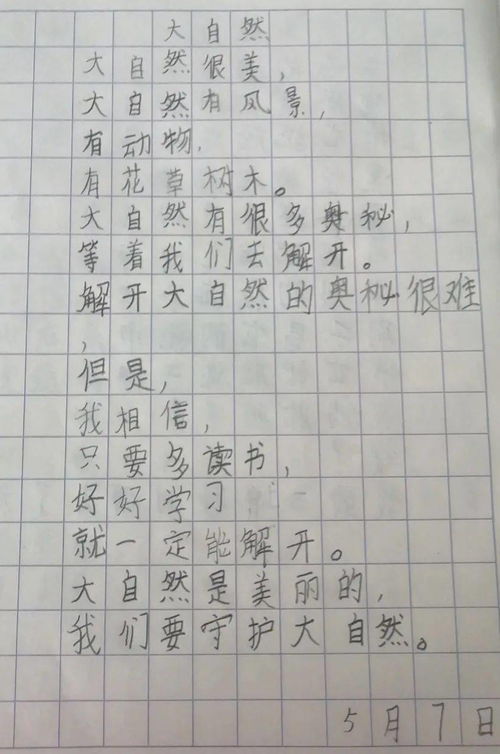 大自然
大自然很美，
大自然有风景，
有动物，
有花草树木。
大自然有很多奥秘，
等着我们去解开。
解开大自然的奥秘很难
，
但是，
我相信，
只要多读书，
好好学习
就一定能解开。
大自然是美丽的，
我们要守护大自然。
5月7日